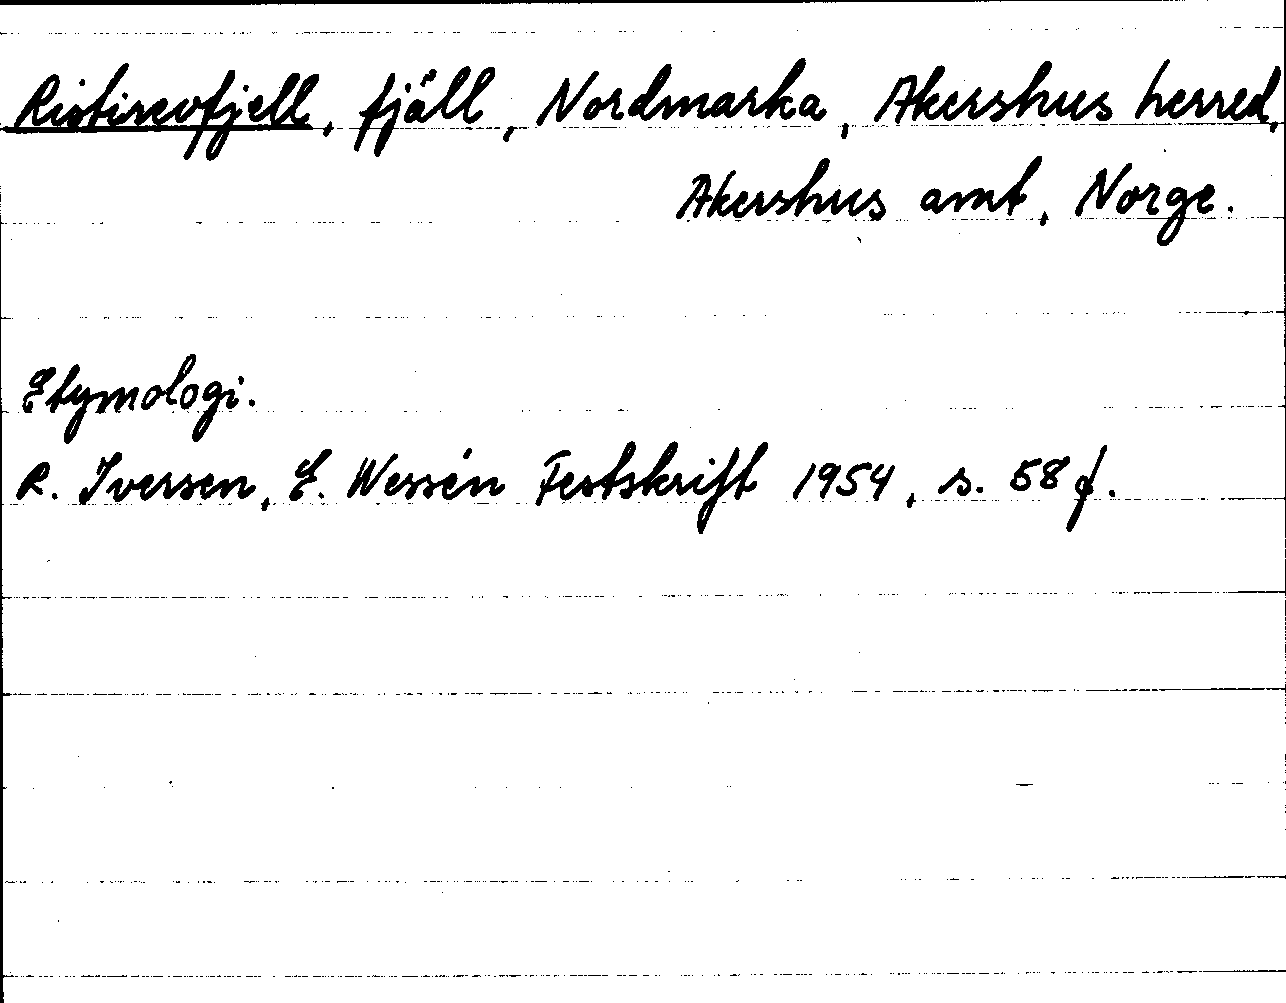 Ristirevfjell, fjäll, Nordmarka, Akershus herred,
Akershus amt, Norge.
Etymologi.
R. Iversen, E. Wessén Festskrift 1954, s. 58 f.